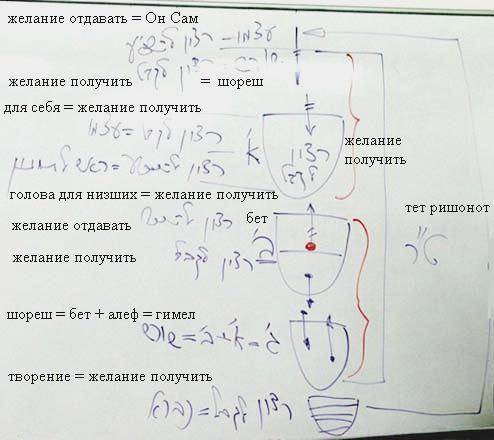 желание отдавать = Он Сам
עצמו – רצון להשפיע
רצון לקבל
желание получить = шореш
для себя = желание получить
רצון לקבל = עצמו
א'
רצון
לקבל
желание
получить
רצון להשפיע = ראש
голова для низших = желание получить
желание отдавать
רצון להשפיע
бет
желание получить
רצון לקבל
ב'
тет ришонот
ט"ר
шореш = бет + алеф = гимел
ג' = א' + ב' = שורש
творение = желание получить
רצון לקבל = נברא